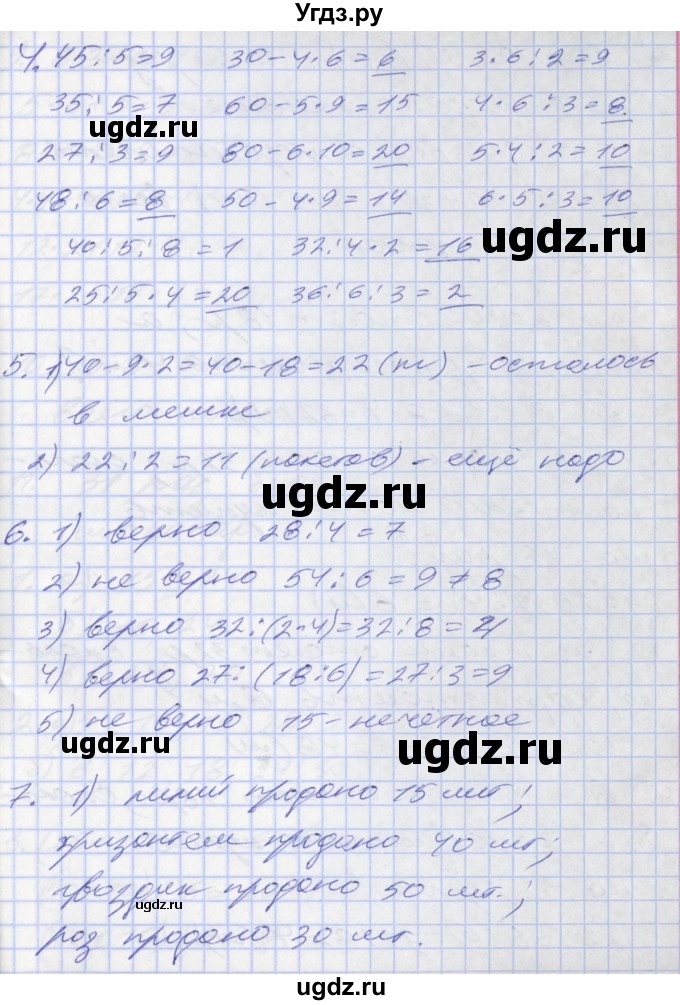 Угдз.ру
4. 45:5=9 30-4·6=6 3·6:2=9
35:5=7 60-5·9=15 4·6:3=8.
ugdz.ru
27:3=9 80-6·10=20 5·4:2=10
ugdz.ru
48:6=8 50-4·9=14 6·5:3=10
40:5:8=1 32:4·2=16
ugdz.ru
25:5·4=20 36:6:3=2
5. 1) 40-9·2=40-18=22 (кг) - осталось
в мешке
2) 22:2=11 (пакетов) - ещё надо
ugdz.ru
6. 1) верно 28:4=7
2) не верно 54:6=9≠8
3) верно 32:(2·4)=32:8=4
4) верно 27:(18:6)=27:3=9
5) не верно 15-нечётное
ugdz.ru
ugdz.ru
7. 1) лилий продано 15 шт.;
хризантем продано 40 шт;
гвоздик продано 50 шт.;
ugdz.ru
роз продано 30 шт.
ugdz.ru